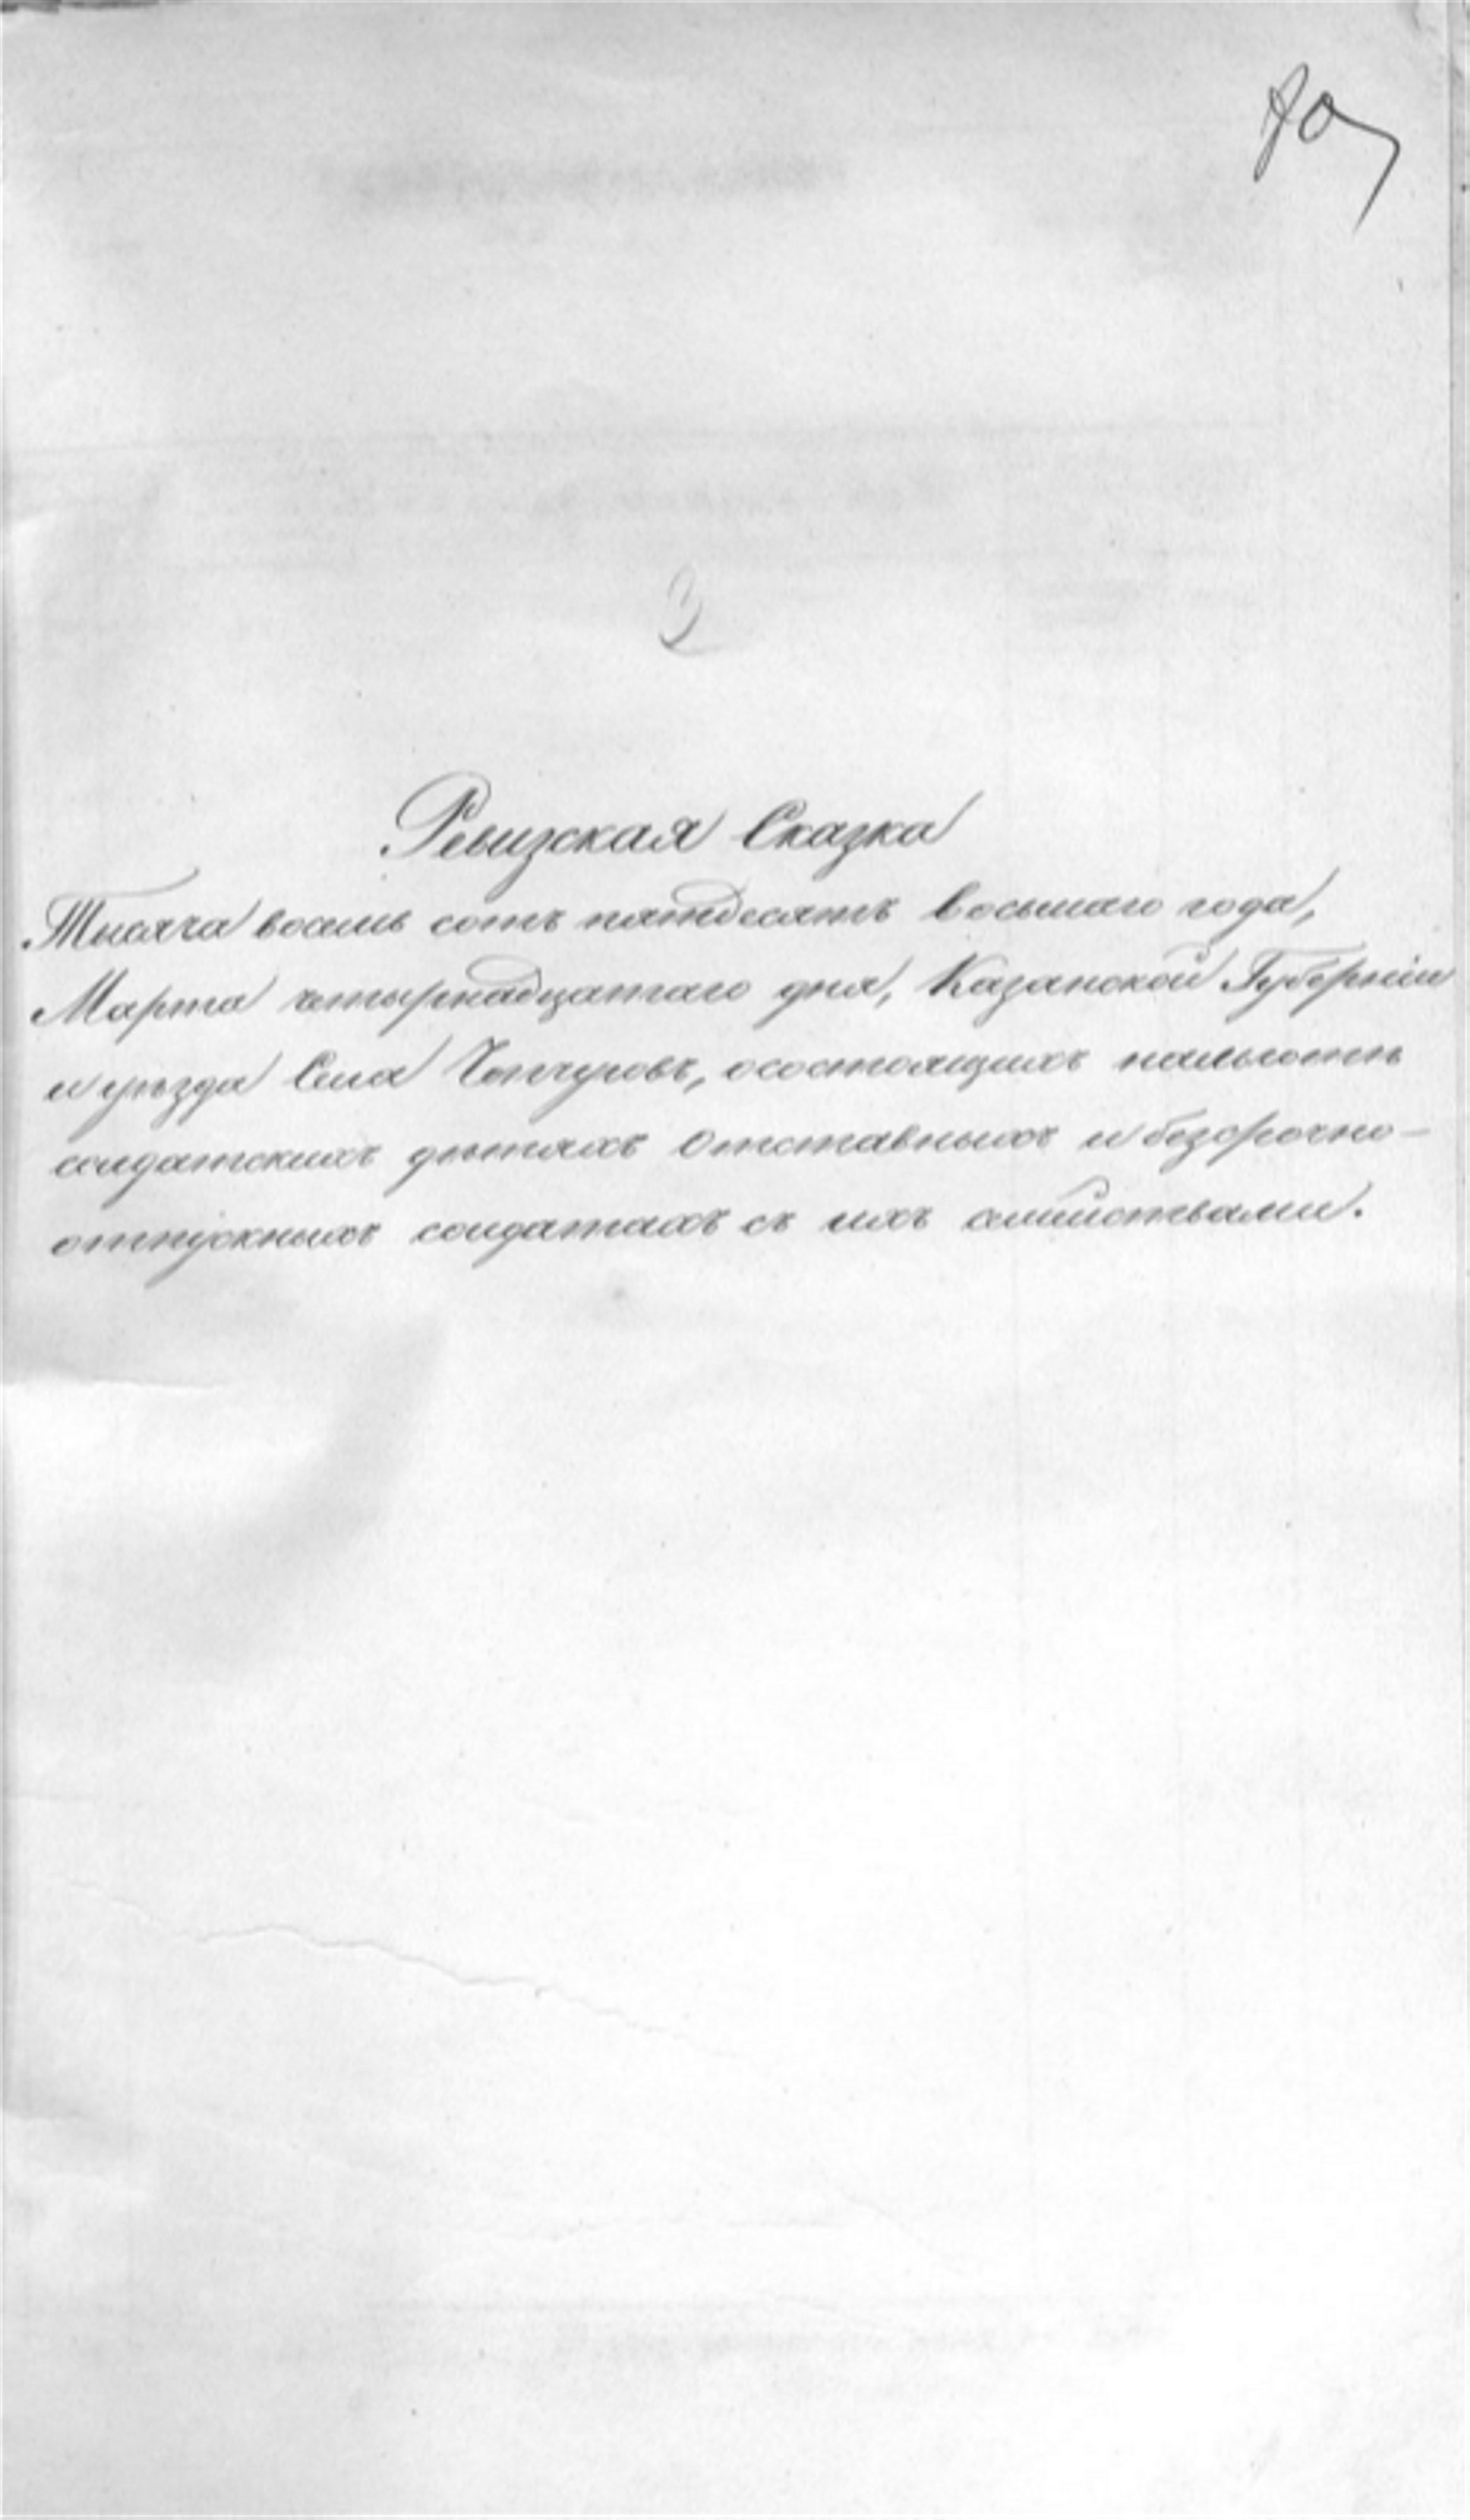 3
Ревизская Сказка
Тысяча восемь сотъ пятдесятъ восьмаго года,
Марта четырнадцатаго дня, Казанской Губерніи
и уѣзда Села Чепчуговъ, осостоящихъ нальготѣ
солдатскихъ дѣтяхъ отставныхъ и безсрочно-
отпускныхъ солдатахъ съ ихъ семействами.